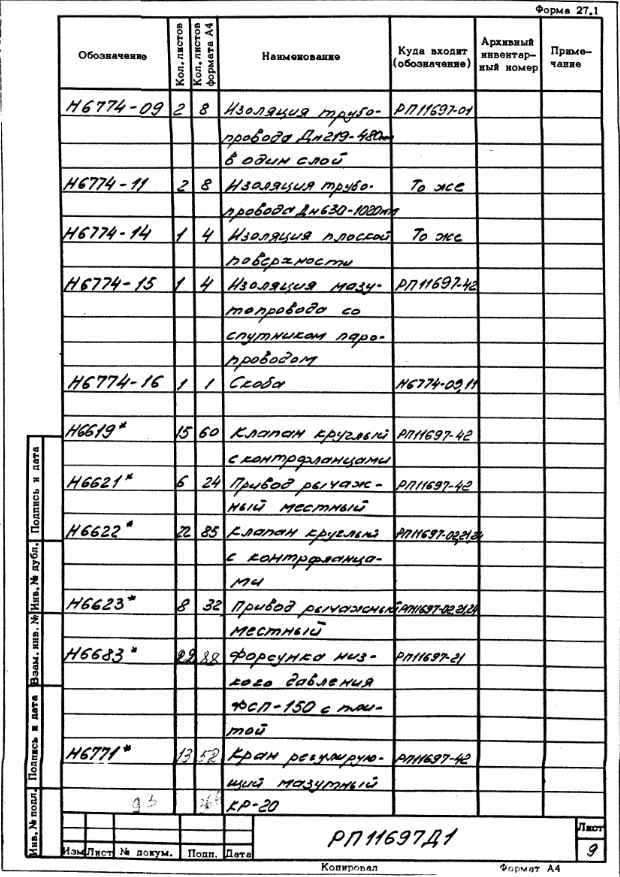 Форма 27.1
Обозначение Кол. листов Кол. листов формата А4 Наименование Куда входит (обозначение) Архивный инвентар- ный номер Приме- чание
Н6774-09 2 8 Изоляция трубо- РП11697-01
провода Дн219-480мм
в один слой
Н6774-11 2 8 Изоляция трубо- То же
провода Дн630-1020мм
Н6774-14 1 4 Изоляция плоской То же
поверхности
Н6774-15 1 4 Изоляция мазу- РП11697-42
топровода со
спутником паро-
проводом
Н6774-16 1 1 Скоба Н6774-09,11
Н6619* 15 60 Клапан круглый РП11697-42
с контрфланцами
Н6621* 6 24 Привод рычаж- РП11697-42
ный местный
Н6622* 22 85 Клапан круглый РП11697-02,21,24
с контрфланца-
ми
Н6623* 8 32 Привод рычажный РП11697-02,21,24
местный
Н6683* 22 88 Форсунка низ- РП11697-21
кого давления
ФСП-150 с пли-
той
Н6771* 13 52 Кран регулирую- РП11697-42
щий мазутный
93 КР-20
Инв. № подл. Подпись и дата Взам. инв. № Инв. № дубл. Подпись и дата
РП11697Д1
Лист
9
Изм Лист № докум. Подп. Дата
Копировал Формат А4